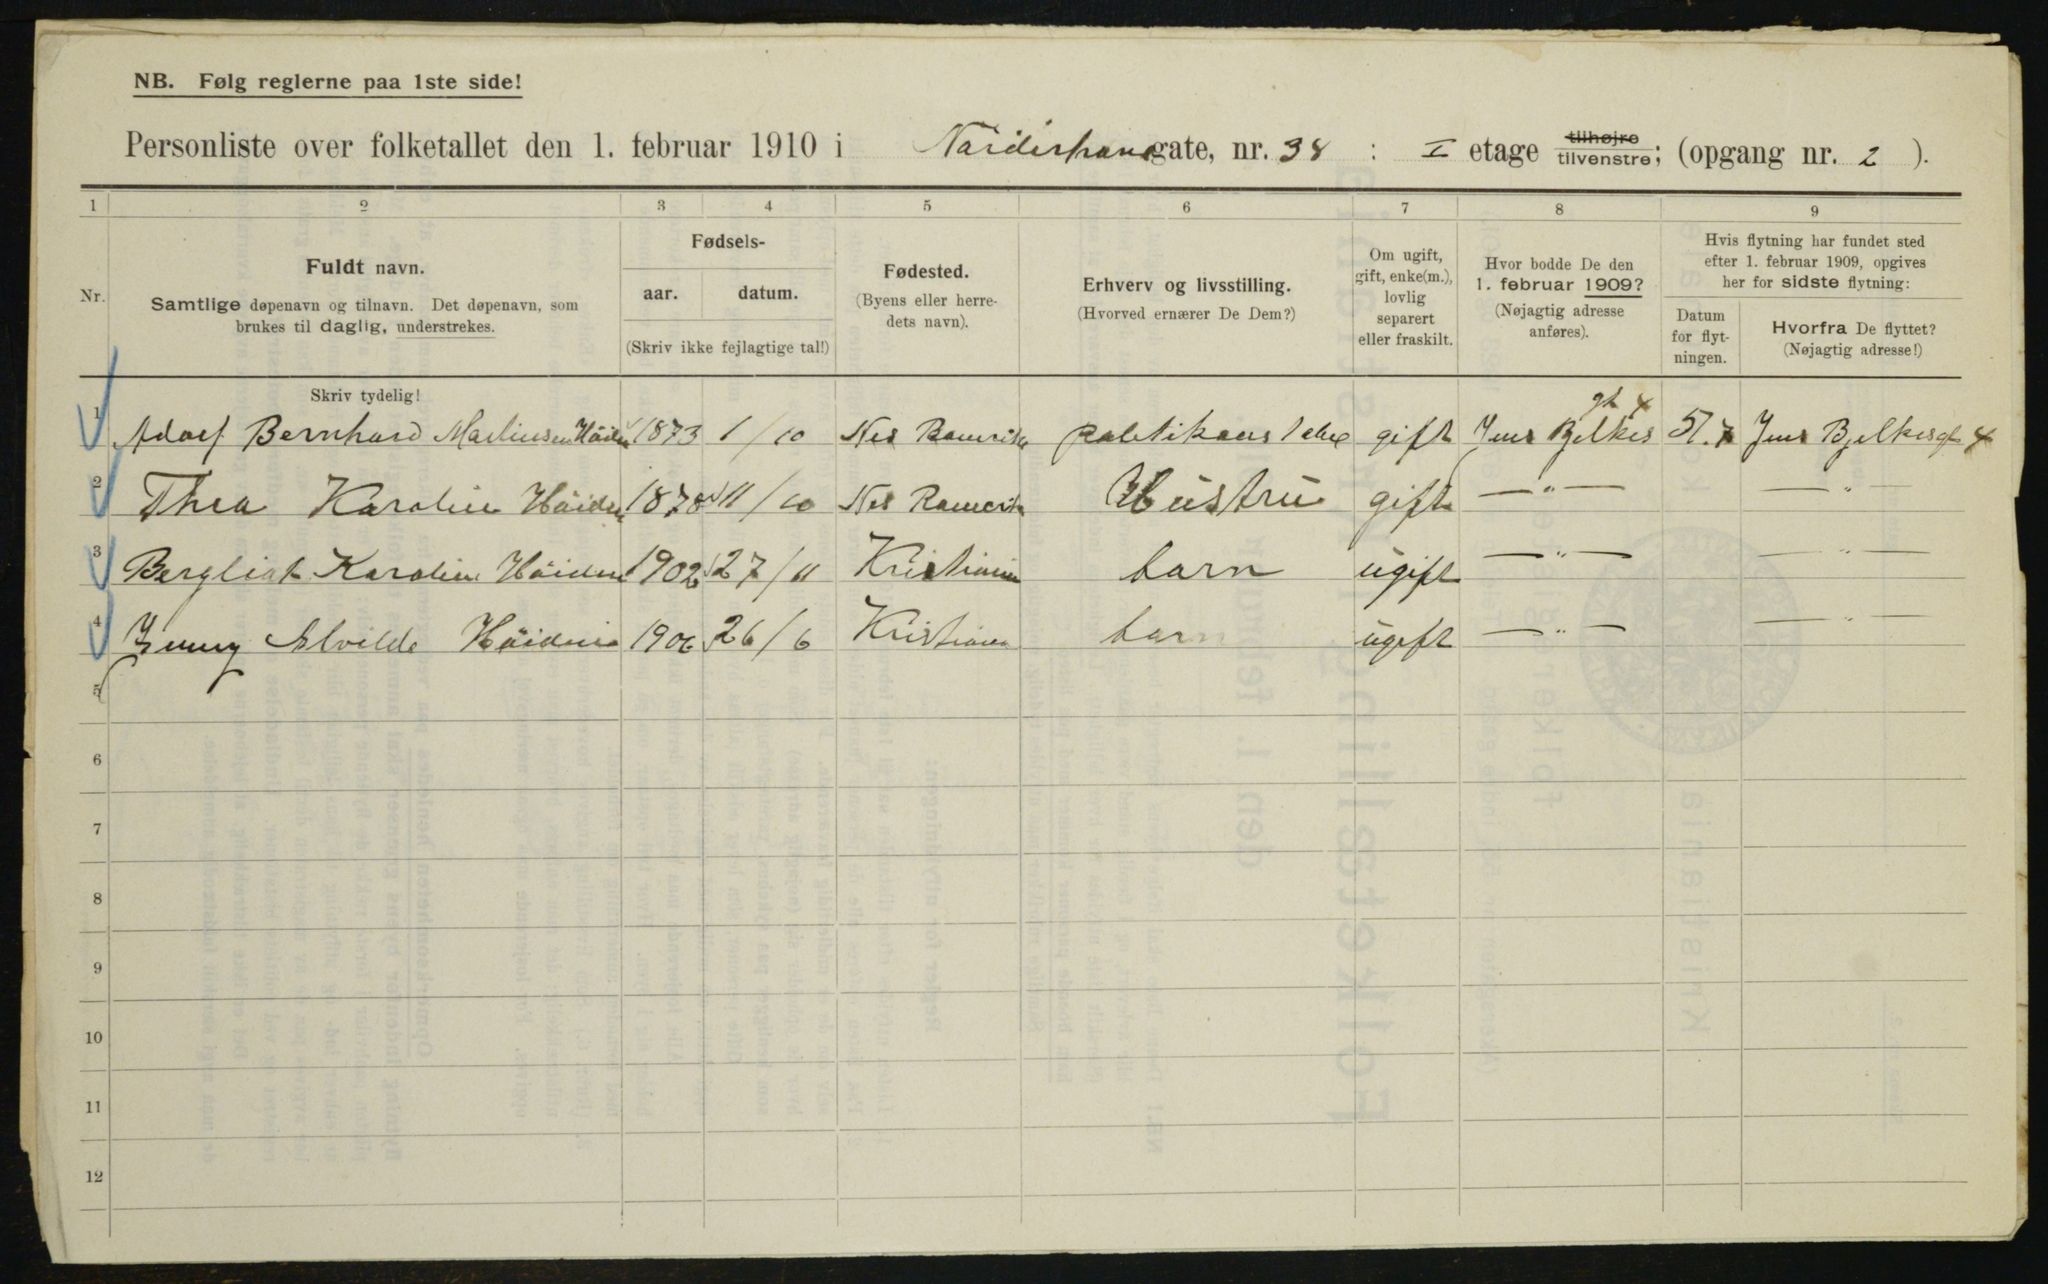 NB. Følg reglerne paa 1ste side!
Personliste over folketallet den 1. februar 1910 i gate, nr. 38 : I etage tilhøjre tilvenstre; (opgang nr. 2 ).
1 2 3 4 5 6 7 8 9
Nr.
Fuldt navn.
Samtlige døpenavn og tilnavn. Det døpenavn, som
brukes til daglig, understrekes.
Fødsels-
aar. datum.
(Skriv ikke fejlagtige tal!)
Fødested.
(Byens eller herre-
dets navn).
Erhverv og livsstilling.
(Hvorved ernærer De Dem?)
Om ugift,
gift, enke(m.),
lovlig
separert
eller fraskilt.
Hvor bodde De den
1. februar 1909?
(Nøjagtig adresse
anføres).
Hvis flytning har fundet sted
efter 1. februar 1909, opgives
her for sidste flytning:
Datum
for flyt-
ningen.
Hvorfra De flyttet?
(Nøjagtig adresse!)
Skriv tydelig!
1 Adolf Bernhard Martinsen 1873 1/10 Nes Romerike gift Jens Bjelkes gt 4 Jens Bjelkes gt 4
2 Thea Karoline 1878 11/10 Nes Romerike Hustru gift —"— —"—
3 Bergliot Karoline 1902 27/11 Kristiania barn ugift —"— —"—
4 Jenny Alvilde 1906 26/6 Kristiania barn ugift —"— —"—
5
6
7
8
9
10
11
12